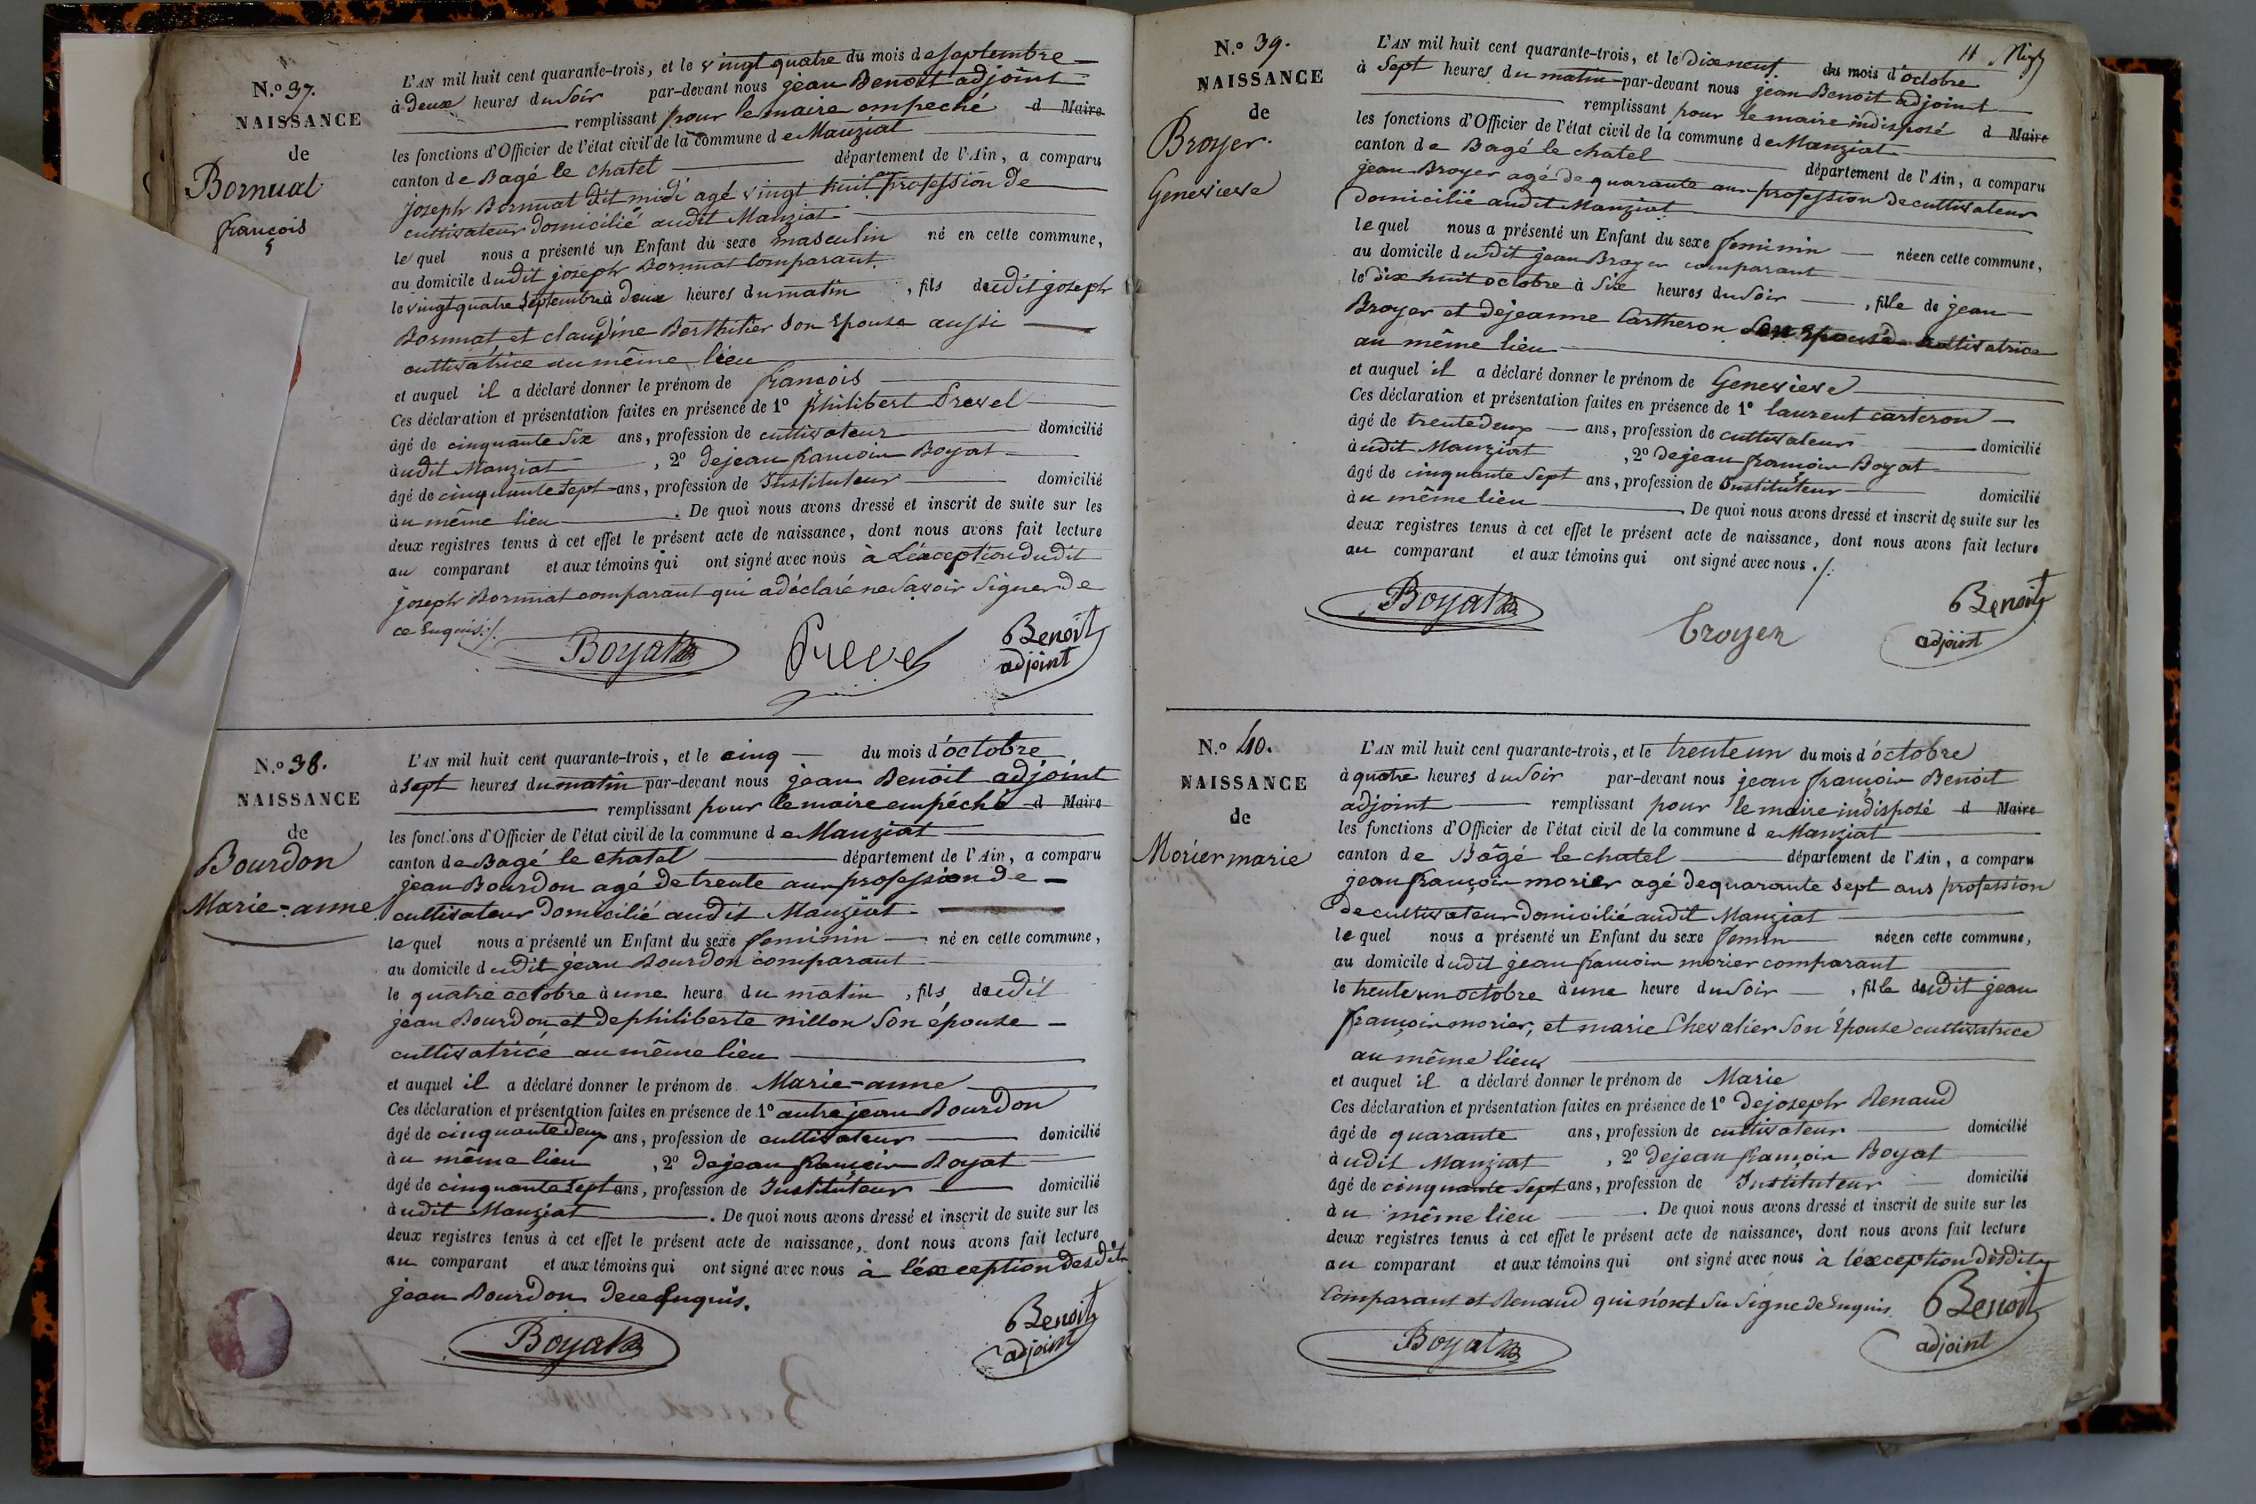 N.o 37.
NAISSANCE
de
Bornuat
françois
L'AN mil huit cent quarante-trois, et le vingt quatre du mois de septembre
à deux heures du soir par-devant nous jean Benoit adjoint
remplissant pour le maire empeché d Maire
les fonctions d'Officier de l'état civil de la commune de Manziat
canton de Bagé le chatel département de l'Ain, a comparu
joseph Bornuat dit midi agé vingt huit profession de
cultivateur domicilié audit Manziat
le quel nous a présenté un Enfant du sexe masculin né en cette commune,
au domicile dudit joseph Bornuat Comparant
le vingt quatre septembre à deux heures du matin, fils dudit joseph
Bornuat et claudine Berthilier son Epouse aussi
cultivatrice au même lieu
et auquel il a déclaré donner le prénom de françois
Ces déclaration et présentation faites en présence de 1o philibert Prevel
âgé de cinquante six ans, profession de cultivateur domicilié
àudit Manziat, 2o de jean françois Boyat
âgé de cinquante sept ans, profession de Instituteur domicilié
àu même lieu. De quoi nous avons dressé et inscrit de suite sur les
deux registres tenus à cet effet le présent acte de naissance, dont nous avons fait lecture
au comparant et aux témoins qui ont signé avec nous à L'éxception dudit
joseph Bornuat comparant qui a déclaré ne savoir signer de
ce Enquis./.
Boyat Prevel Benoit
adjoint
N.o 38.
NAISSANCE
de
Bourdon
Marie-anne
L'AN mil huit cent quarante-trois, et le cinq du mois d'octobre
à sept heures du matin par-devant nous jean Benoit adjoint
remplissant pour le maire empéché d Maire
les fonctions d'Officier de l'état civil de la commune de Manziat
canton de Bagé le chatel département de l'Ain, a comparu
jean Bourdon agé de trente ans profession de
cultivateur domicilié audit Manziat
le quel nous a présenté un Enfant du sexe feminin né en cette commune,
au domicile dudit jean Bourdon comparant
le quatre octobre à une heure du matin, fils dudit
jean Bourdon et de philiberte nillon son épouse
cultivatrice au même lieu
et auquel il a déclaré donner le prénom de Marie-anne
Ces déclaration et présentation faites en présence de 1o autre jean Bourdon
âgé de cinquante deux ans, profession de cultivateur domicilié
àu même lieu, 2o de jean françois Boyat
âgé de cinquante sept ans, profession de Instituteur domicilié
àudit Manziat. De quoi nous avons dressé et inscrit de suite sur les
deux registres tenus à cet effet le présent acte de naissance, dont nous avons fait lecture
au comparant et aux témoins qui ont signé avec nous à l'éxception desdits
jean Bourdon de ce Enquis.
Boyat Benoit
adjoint
N.o 39.
NAISSANCE
de
Broyer
Genevieve
11
L'AN mil huit cent quarante-trois, et le dix neuf du mois d'octobre
à sept heures du matin par-devant nous jean Benoit adjoint
remplissant pour le maire indisposé d Maire
les fonctions d'Officier de l'état civil de la commune de Manziat
canton de Bagé le chatel département de l'Ain, a comparu
jean Broyer agé de quarante ans profession de cultivateur
domicilié audit Manziat
le quel nous a présenté un Enfant du sexe feminin née en cette commune,
au domicile dudit jean Broyer comparant
le dix huit octobre à six heures du soir, fille de jean
Broyer et de jeanne Cartheron son Epouse cultivatrice
au même lieu
et auquel il a déclaré donner le prénom de Genevieve
Ces déclaration et présentation faites en présence de 1o laurent carteron
âgé de trente deux ans, profession de cultivateur domicilié
àudit Manziat, 2o de jean françois Boyat
âgé de cinquante sept ans, profession de Instituteur domicilié
àu même lieu. De quoi nous avons dressé et inscrit de suite sur les
deux registres tenus à cet effet le présent acte de naissance, dont nous avons fait lecture
au comparant et aux témoins qui ont signé avec nous ./.
Boyat Broyer Benoit
adjoint
N.o 40.
NAISSANCE
de
Morier marie
L'AN mil huit cent quarante-trois, et le trente un du mois d'octobre
à quatre heures du soir par-devant nous jean françois Benoit
adjoint remplissant pour le maire indisposé d Maire
les fonctions d'Officier de l'état civil de la commune de Manziat
canton de Bâgé le chatel département de l'Ain, a comparu
jean françois morier agé de quarante sept ans profession
de cultivateur domicilié audit Manziat
le quel nous a présenté un Enfant du sexe femin née en cette commune,
au domicile dudit jean francois morier comparant
le trente un octobre à une heure du soir, fille dudit jean
françois morier, et marie Chevalier son Epouse cultivatrice
au même lieu
et auquel il a déclaré donner le prénom de Marie
Ces déclaration et présentation faites en présence de 1o de joseph Renaud
âgé de quarante ans, profession de cultivateur domicilié
àudit Manziat, 2o de jean françois Boyat
âgé de cinquante sept ans, profession de Instituteur domicilié
àu même lieu. De quoi nous avons dressé et inscrit de suite sur les
deux registres tenus à cet effet le présent acte de naissance, dont nous avons fait lecture
au comparant et aux témoins qui ont signé avec nous à léxception desdits
Comparant et Renaud qui n'ont su signe de Enquis
Boyat Benoit
adjoint